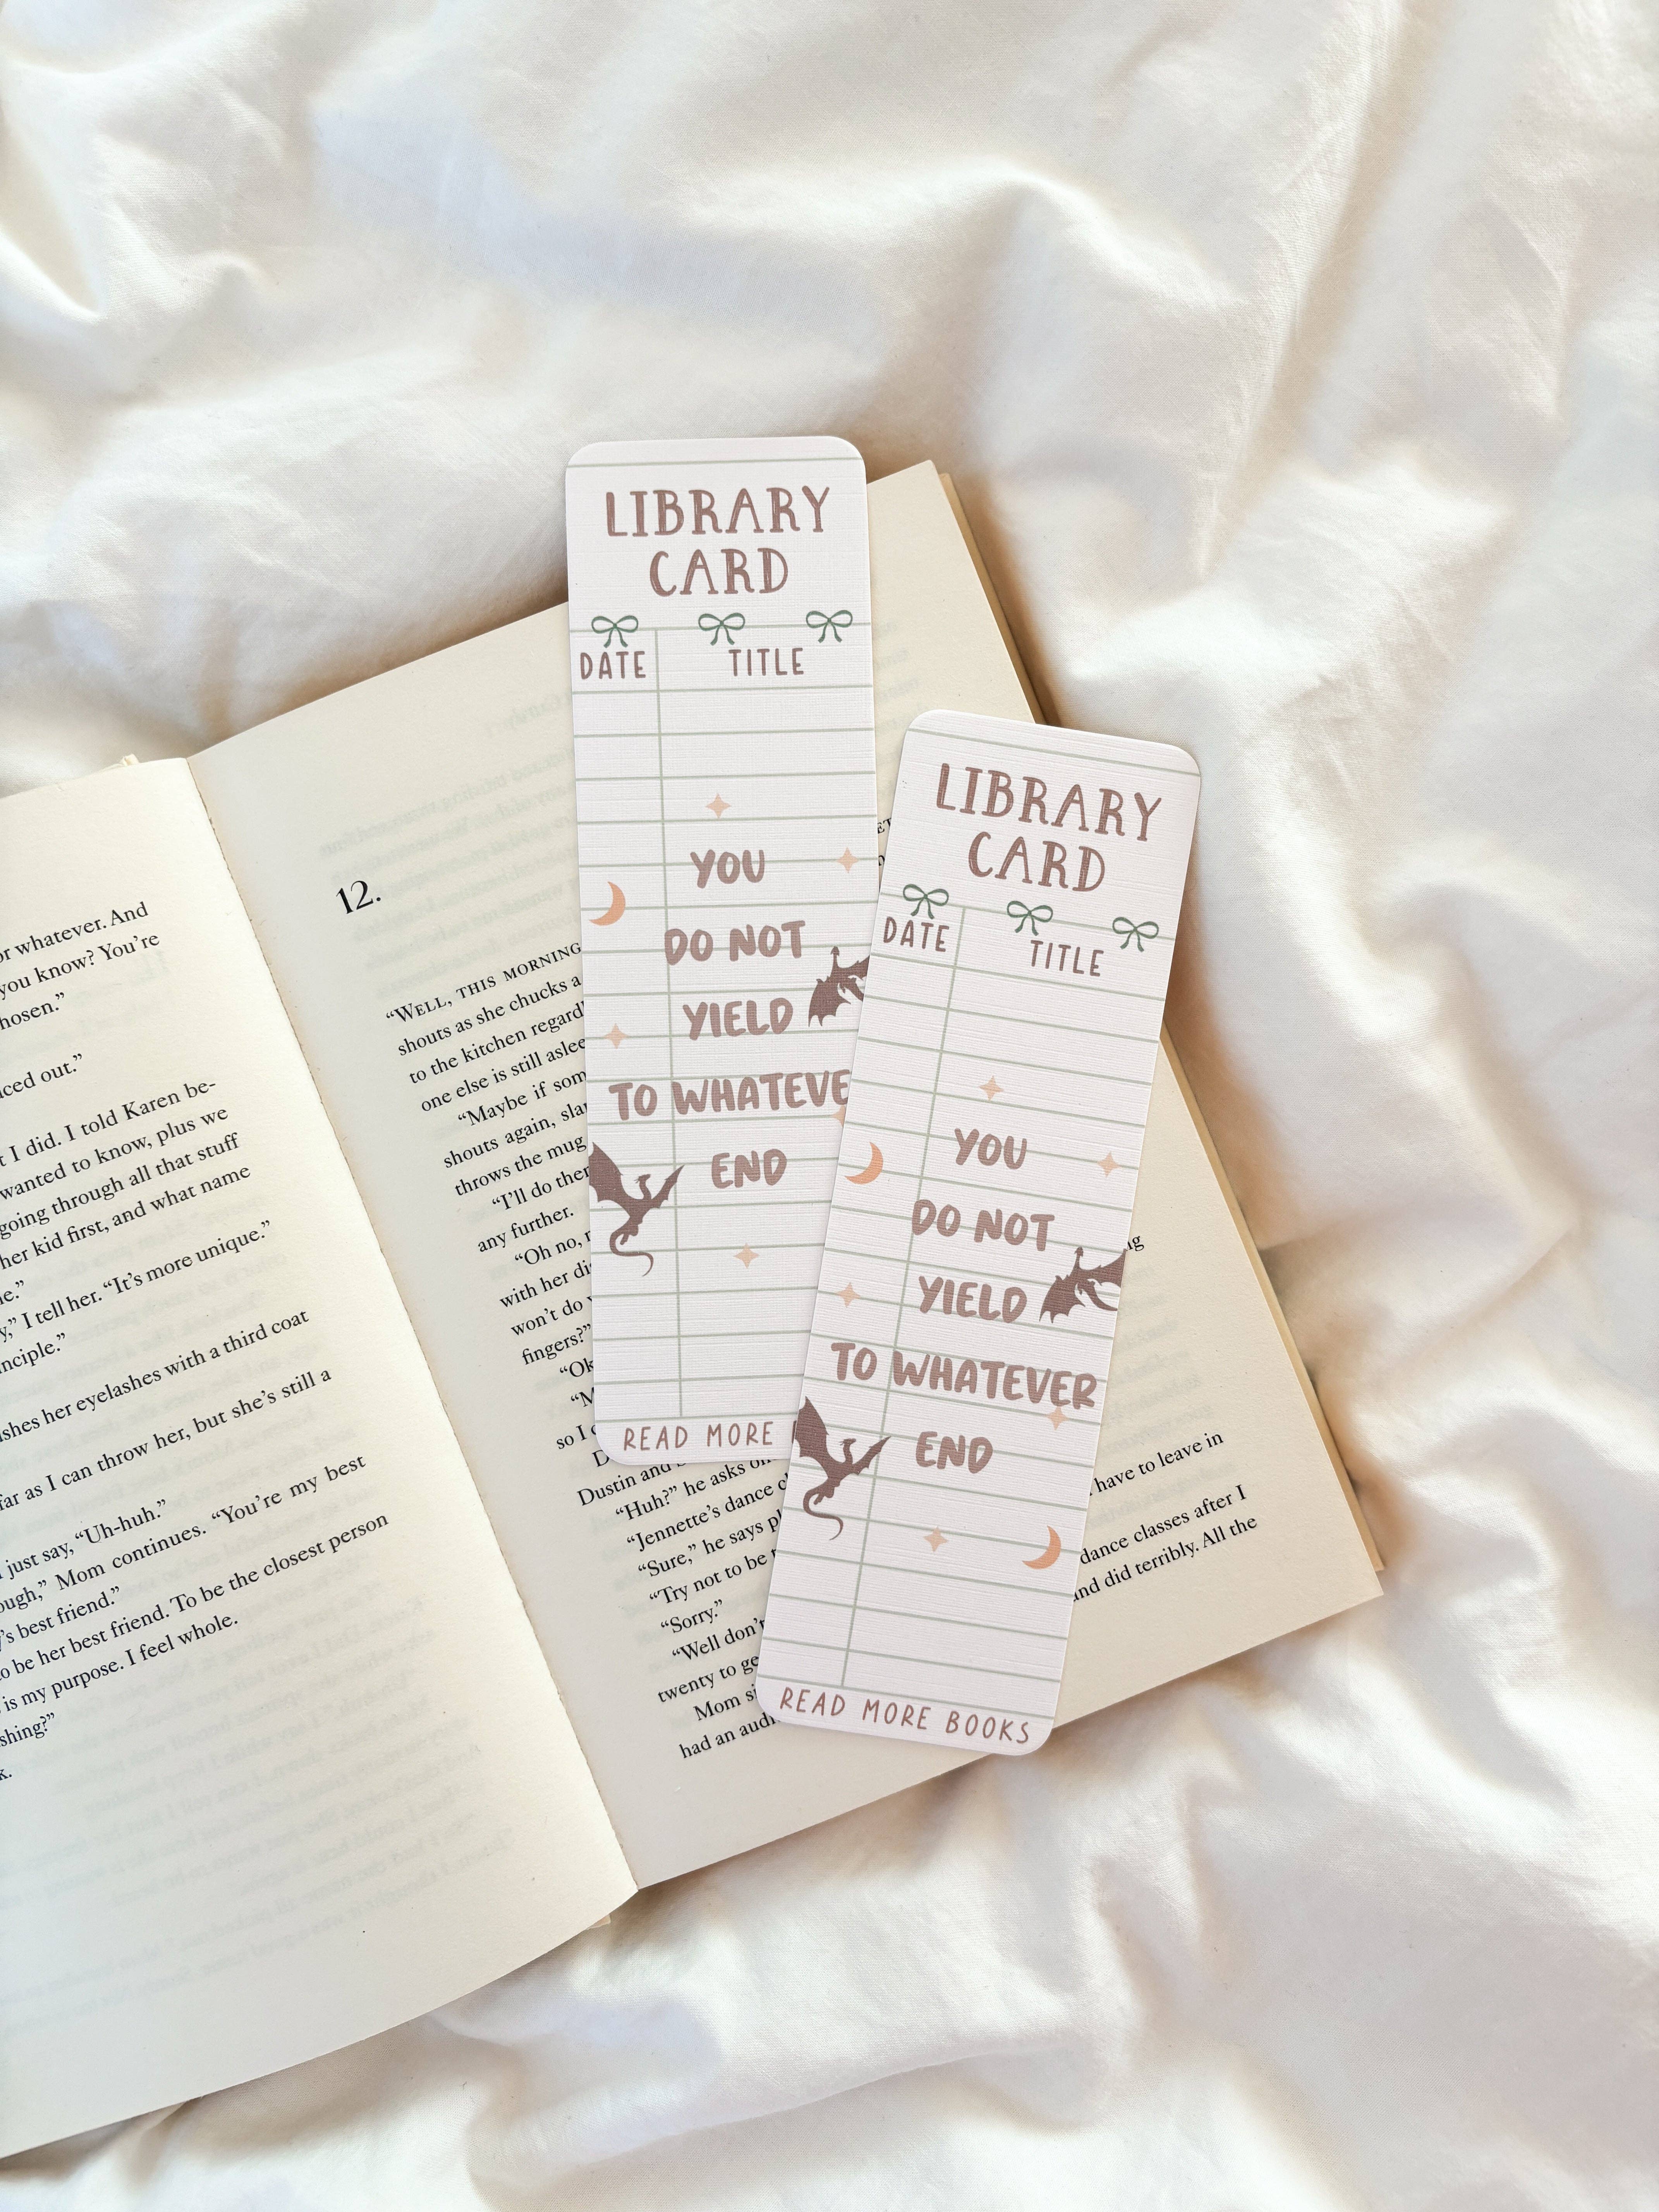 or whatever. And
you know? You're
hosen."
ced out."
t I did. I told Karen be-
wanted to know, plus we
going through all that stuff
her kid first, and what name
e."
y," I tell her. "It's more unique."
nciple."
shes her eyelashes with a third coat
far as I can throw her, but she's still a
just say, "Uh-huh."
ough," Mom continues. "You're my best
's best friend."
o be her best friend. To be the closest person
is my purpose. I feel whole.
shing?"
k.
12.
"WELL, THIS MORNING
shouts as she chucks a
to the kitchen regard
one else is still aslee
"Maybe if som
shouts again, slar
throws the mug
"I'll do ther
any further.
"Oh no, r
with her di
won't do
fingers?"
"Ok
"M
so I
D
Dustin and
"Huh?" he asks
"Jennette's dance c
"Sure," he says pl
"Try not to be
"Sorry."
"Well don't
twenty to ge
Mom si
had an audi
ng
have to leave in
dance classes after I
and did terribly. All the
LIBRARY
CARD
DATE TITLE
YOU
DO NOT
YIELD
TO WHATEVE
END
READ MORE
LIBRARY
CARD
DATE TITLE
YOU
DO NOT
YIELD
TO WHATEVER
END
READ MORE BOOKS